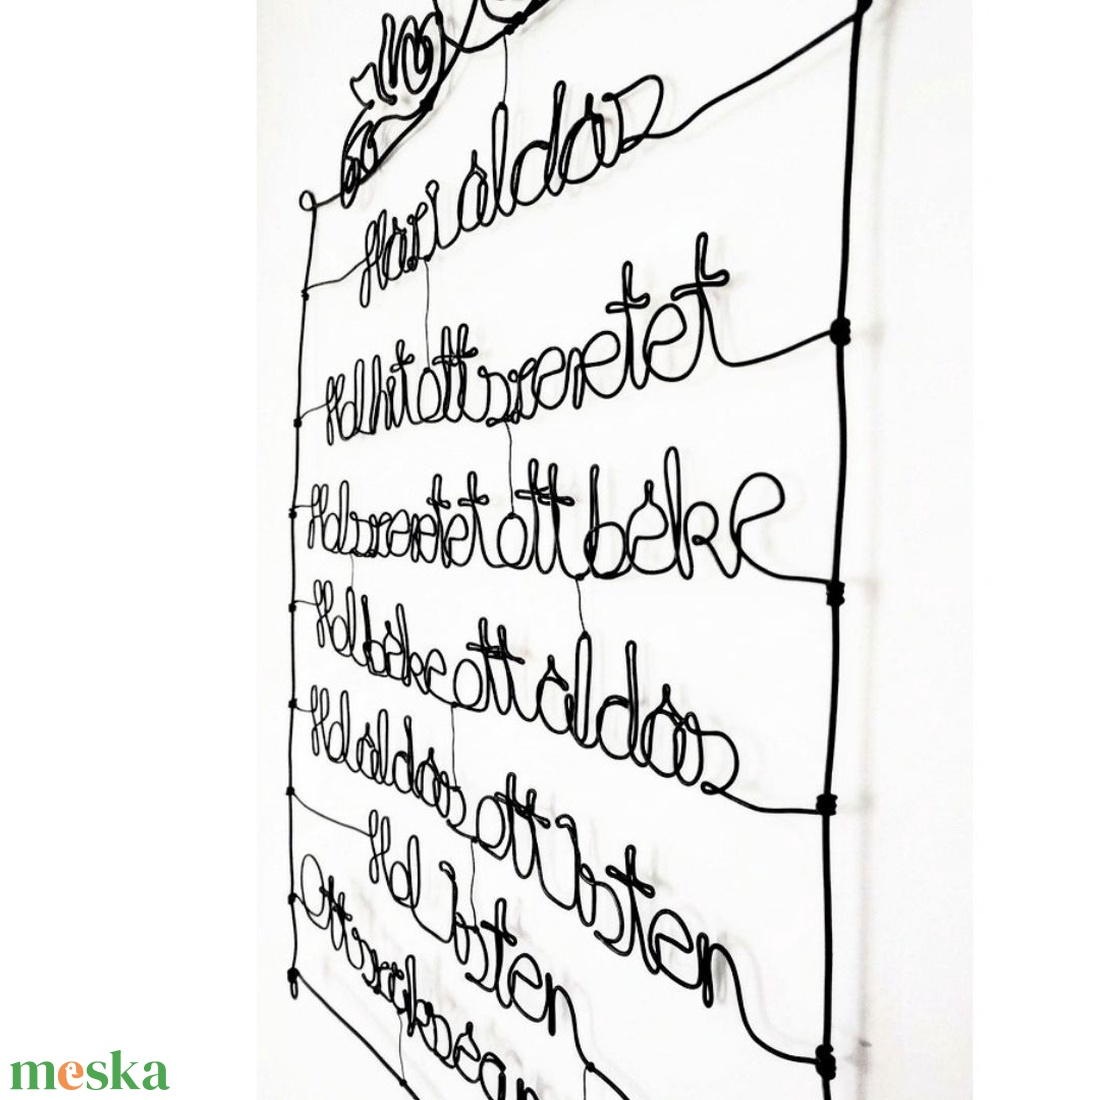 Házi áldás
Hol hit ott szeretet
Hol szeretet ott béke
Hol béke ott áldás
Hol áldás ott Isten
Hol Isten
Ott szükség
meska